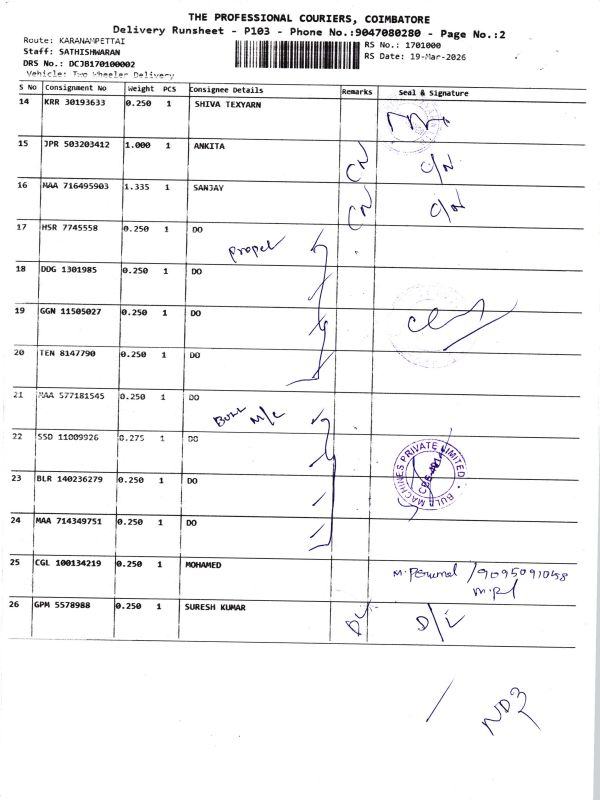 THE PROFESSIONAL COURIERS, COIMBATORE
Delivery Runsheet - P103 - Phone No.:9047080280 - Page No.:2
Route: KARANAMPETTAI
Staff: SATHISHWARAN
DRS No.: DCJB170100002
Vehicle: Two Wheeler Delivery
RS No.: 1701000
RS Date: 19-Mar-2026
S No Consignment No Weight PCS Consignee Details Remarks Seal & Signature
14 KRR 30193633 0.250 1 SHIVA TEXYARN
15 JPR 503203412 1.000 1 ANKITA CN C/N
16 MAA 716495903 1.335 1 SANJAY CN C/N
17 HSR 7745558 0.250 1 DO
Propel
18 DDG 1301985 0.250 1 DO
19 GGN 11505027 0.250 1 DO
20 TEN 8147790 0.250 1 DO
21 MAA 577181545 0.250 1 DO
Bull M/C
22 SSD 11009926 0.275 1 DO
BULL MACHINES PRIVATE LIMITED
23 BLR 140236279 0.250 1 DO
24 MAA 714349751 0.250 1 DO
25 CGL 100134219 0.250 1 MOHAMED
26 GPM 5578988 0.250 1 SURESH KUMAR D/L